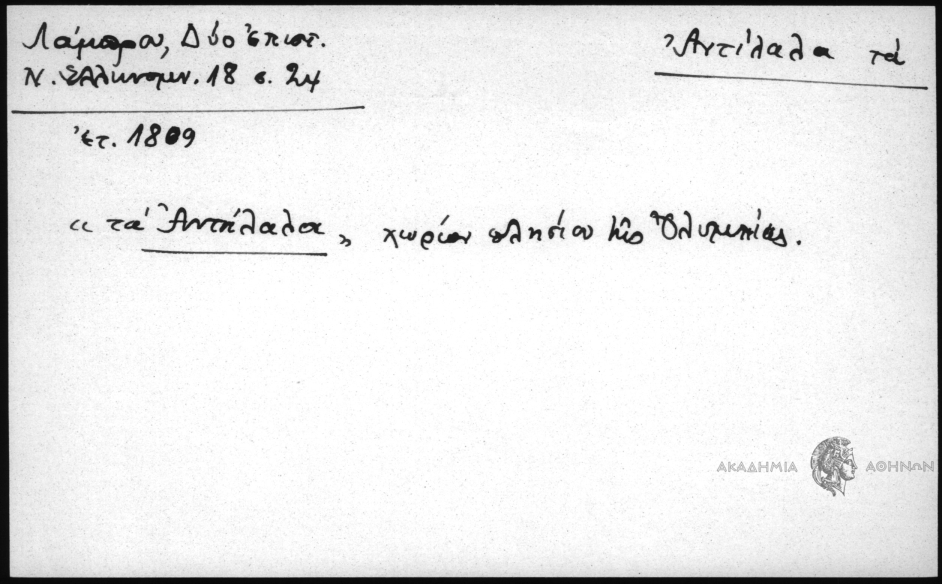 Λάμπρου, Δύο Ἐπιστ.
Ν. Ἑλληνομν. 18 σ. 24
Ἀντίλαλα τά
ἔτ. 1809
«τά Ἀντήλαλα» χωρίον πλησίον τῆς Ὀλυμπίας.
ΑΚΑΔΗΜΙΑ ΑΘΗΝΩΝ